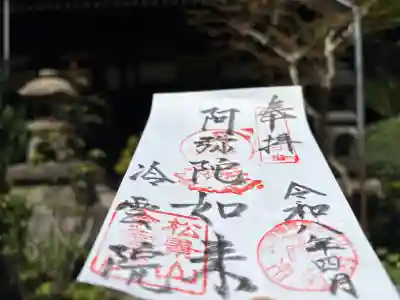 奉拝
令和八年四月
阿弥陀如来
冷雲院